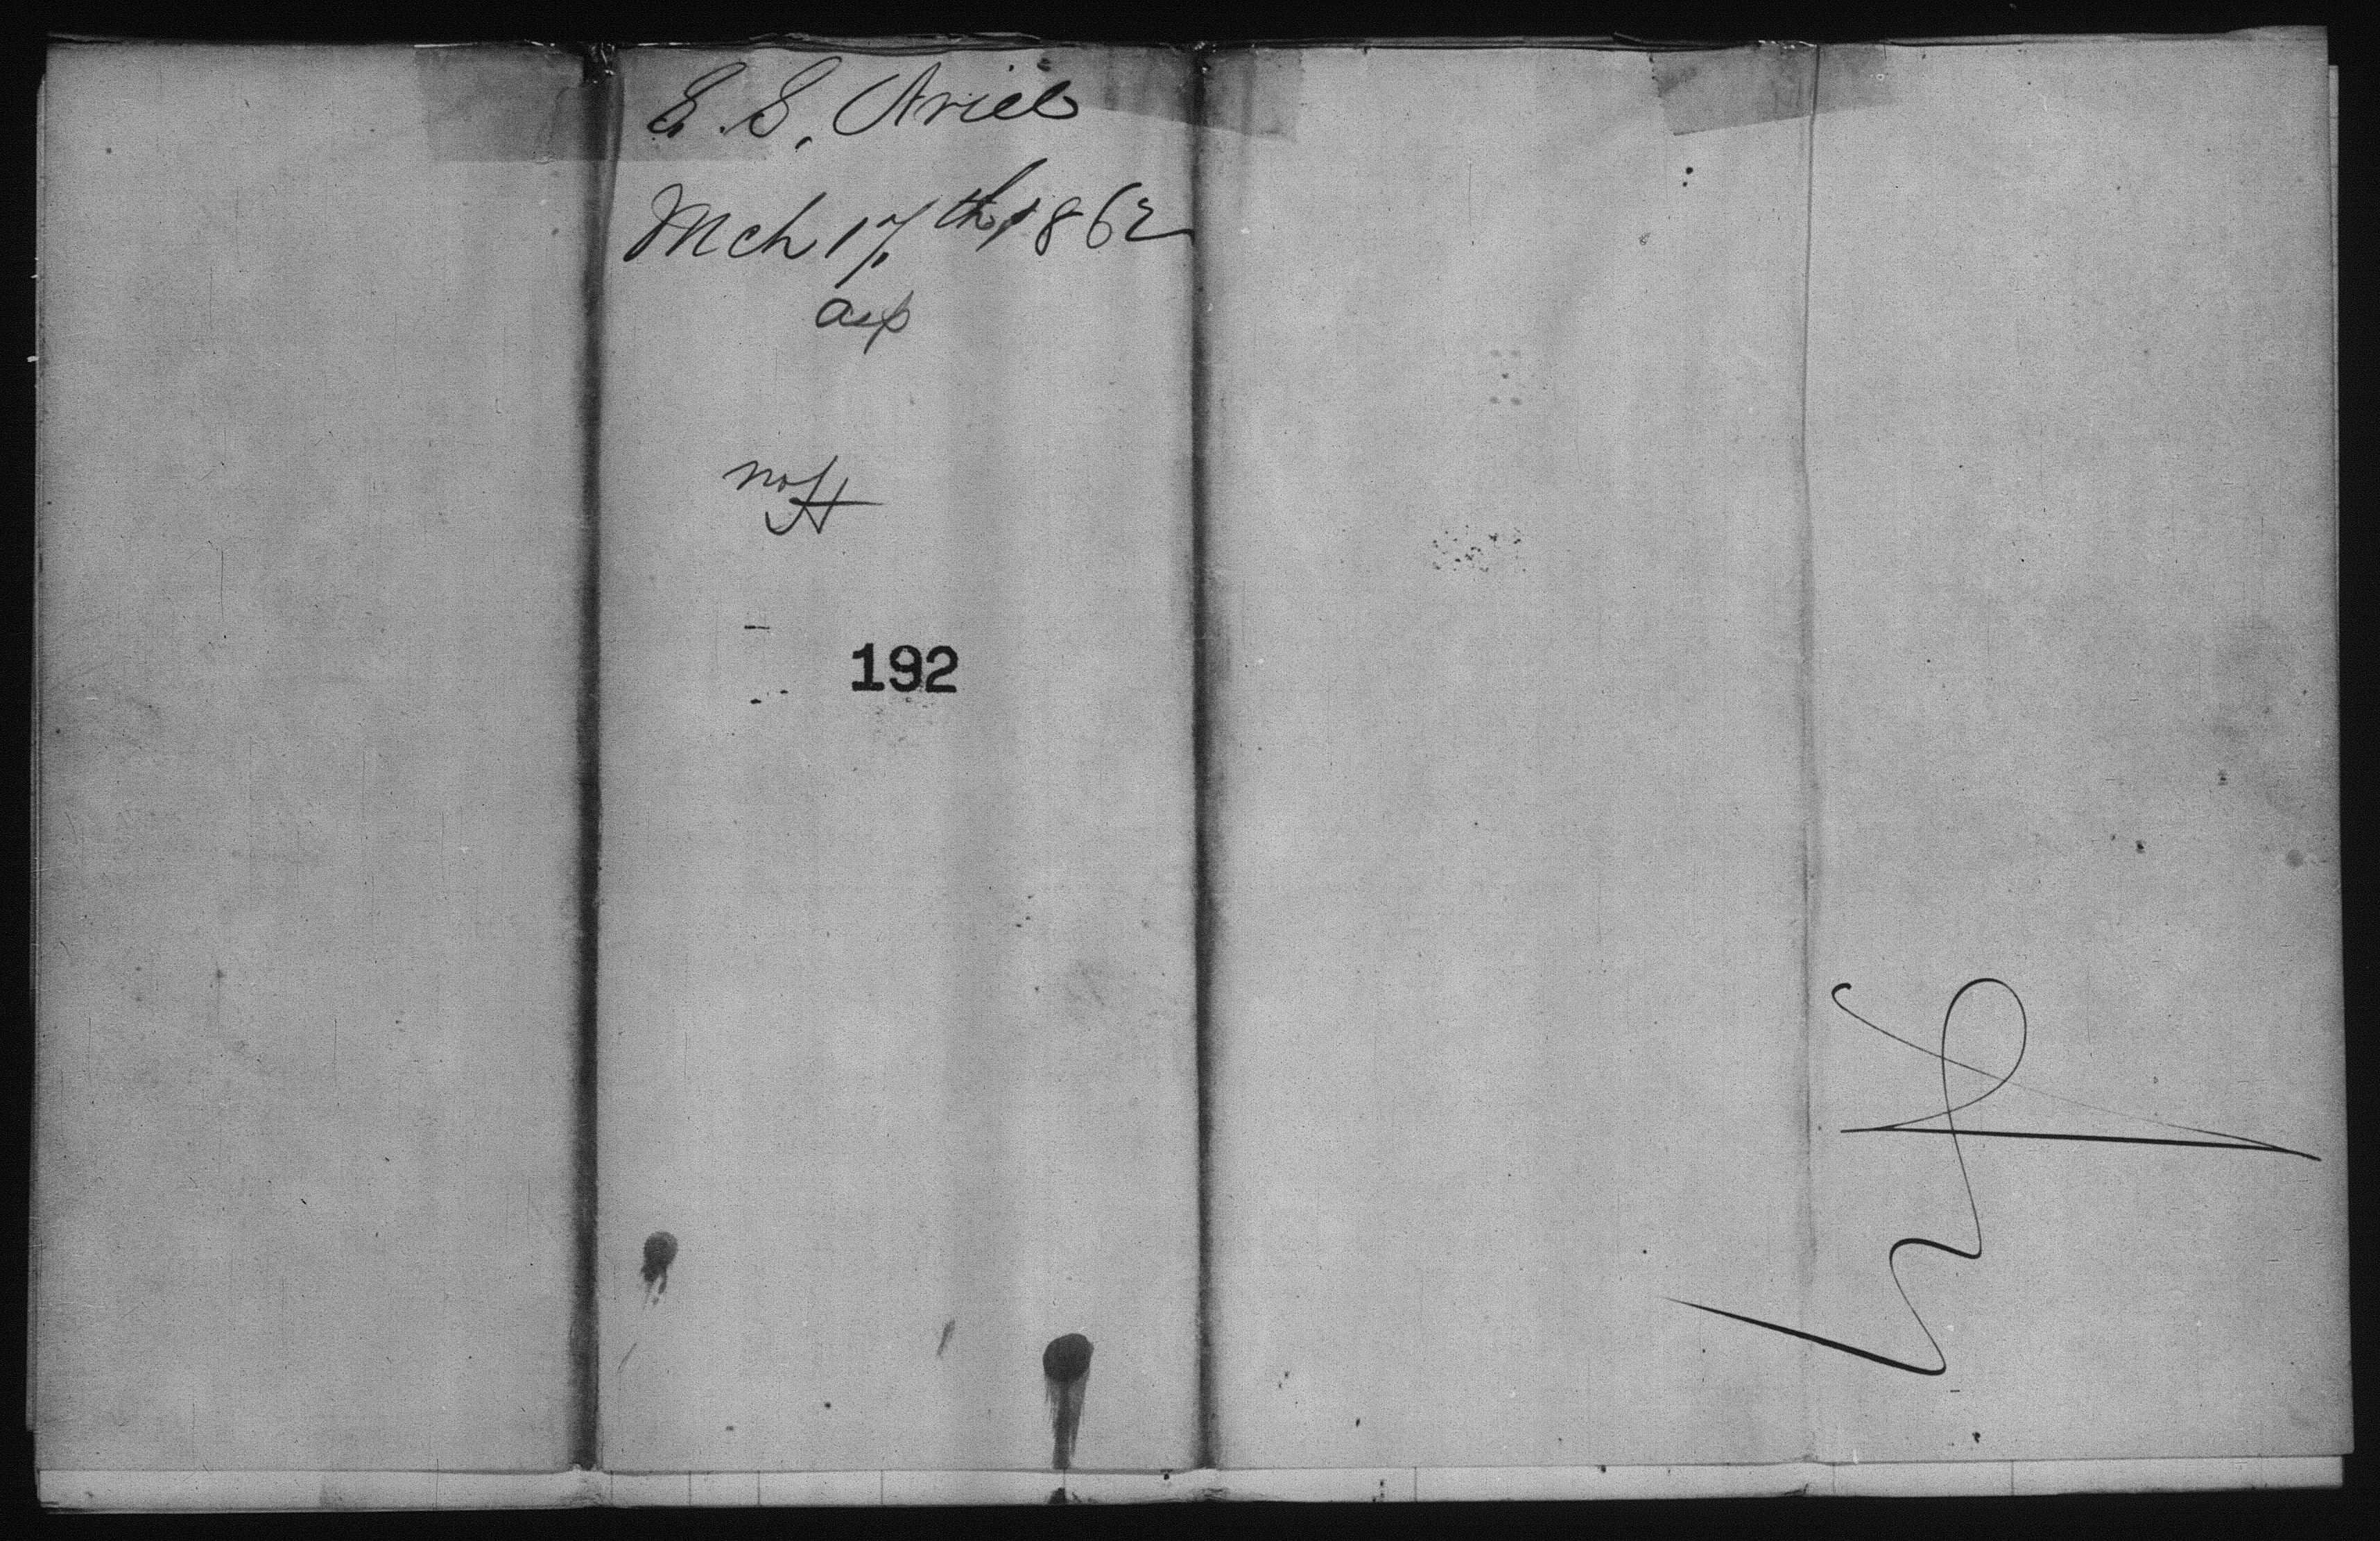 E. S. Ariel
Mch 17th 1862
192